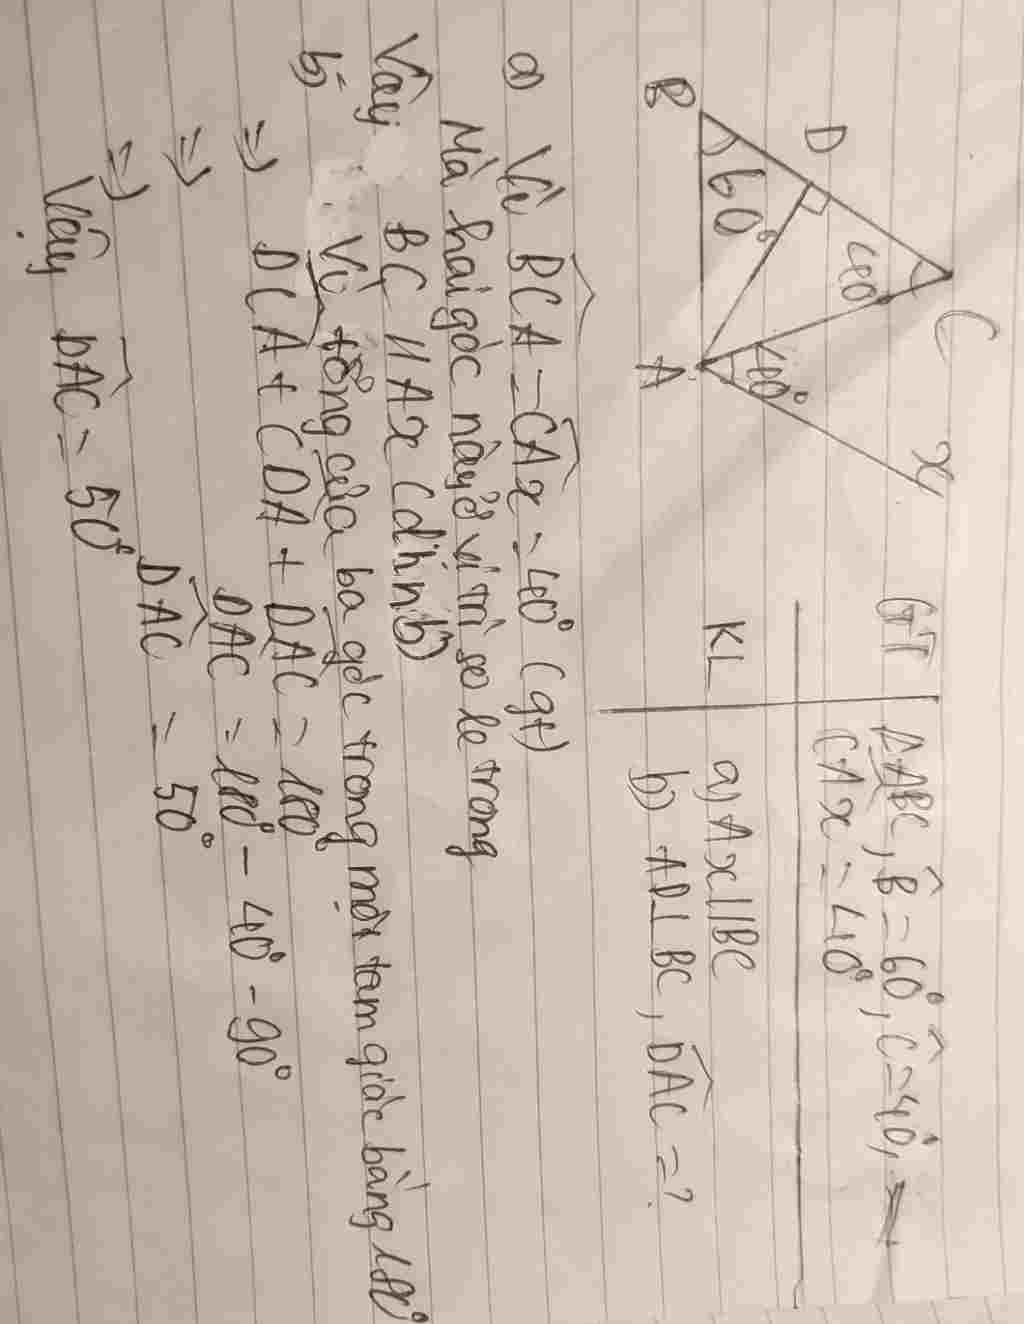 B
D
C
x
A
60°
40°
40°
GT
ΔABC, B̂ = 60°, Ĉ = 40°,
CAx = 40°
KL
a) Ax // BC
b) AD⊥BC, DAC = ?
a) Vì BCA = CAx = 40° (gt)
Mà hai góc này ở vị trí so le trong
Vậy BC // Ax (dhnb)
b) Vì tổng của ba góc trong một tam giác bằng 180°
=> DCA + CDA + DAC = 180°
=> DAC = 180° - 40° - 90°
=> DAC = 50°
Vậy DAC = 50°